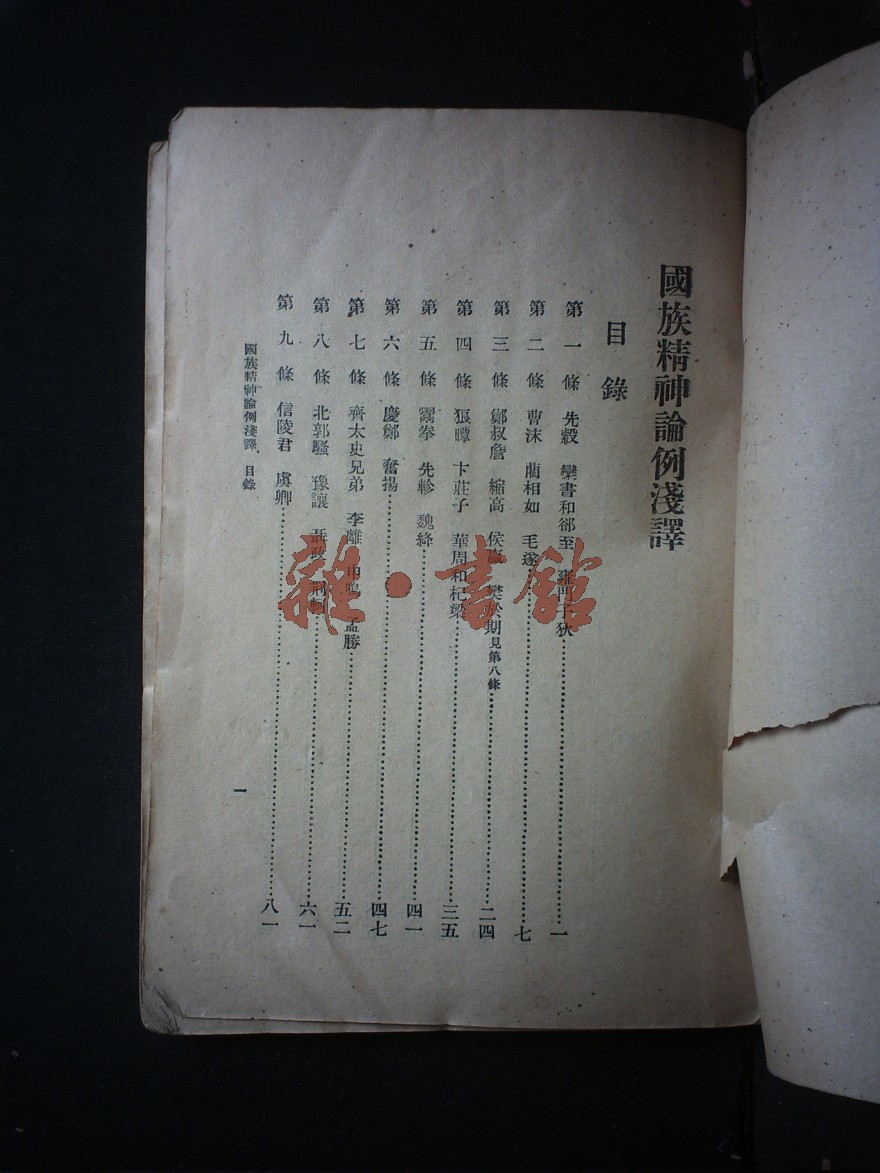 國族精神論例淺譯
目錄
第一條 先縠 欒書和郤至 雍門子狄……一
第二條 曹沫 藺相如 毛遂……七
第三條 鄭叔詹 縮高 侯嬴 樊於期見第八條……二四
第四條 狼瞫 卞莊子 華周和杞梁……三五
第五條 鬻拳 先軫 魏絳……四一
第六條 慶鄭 奮揚……四七
第七條 齊太史兄弟 李離 申鳴 孟勝……五二
第八條 北郭騷 豫讓 聶政 荆軻……六一
第九條 信陵君 虞卿……八一
國族精神論例淺譯 目錄
一
雜·書館